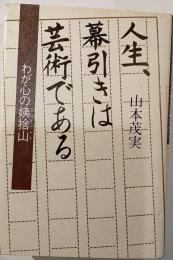 人生、
幕引きは
芸術である
山本茂実
わが心の姨捨山